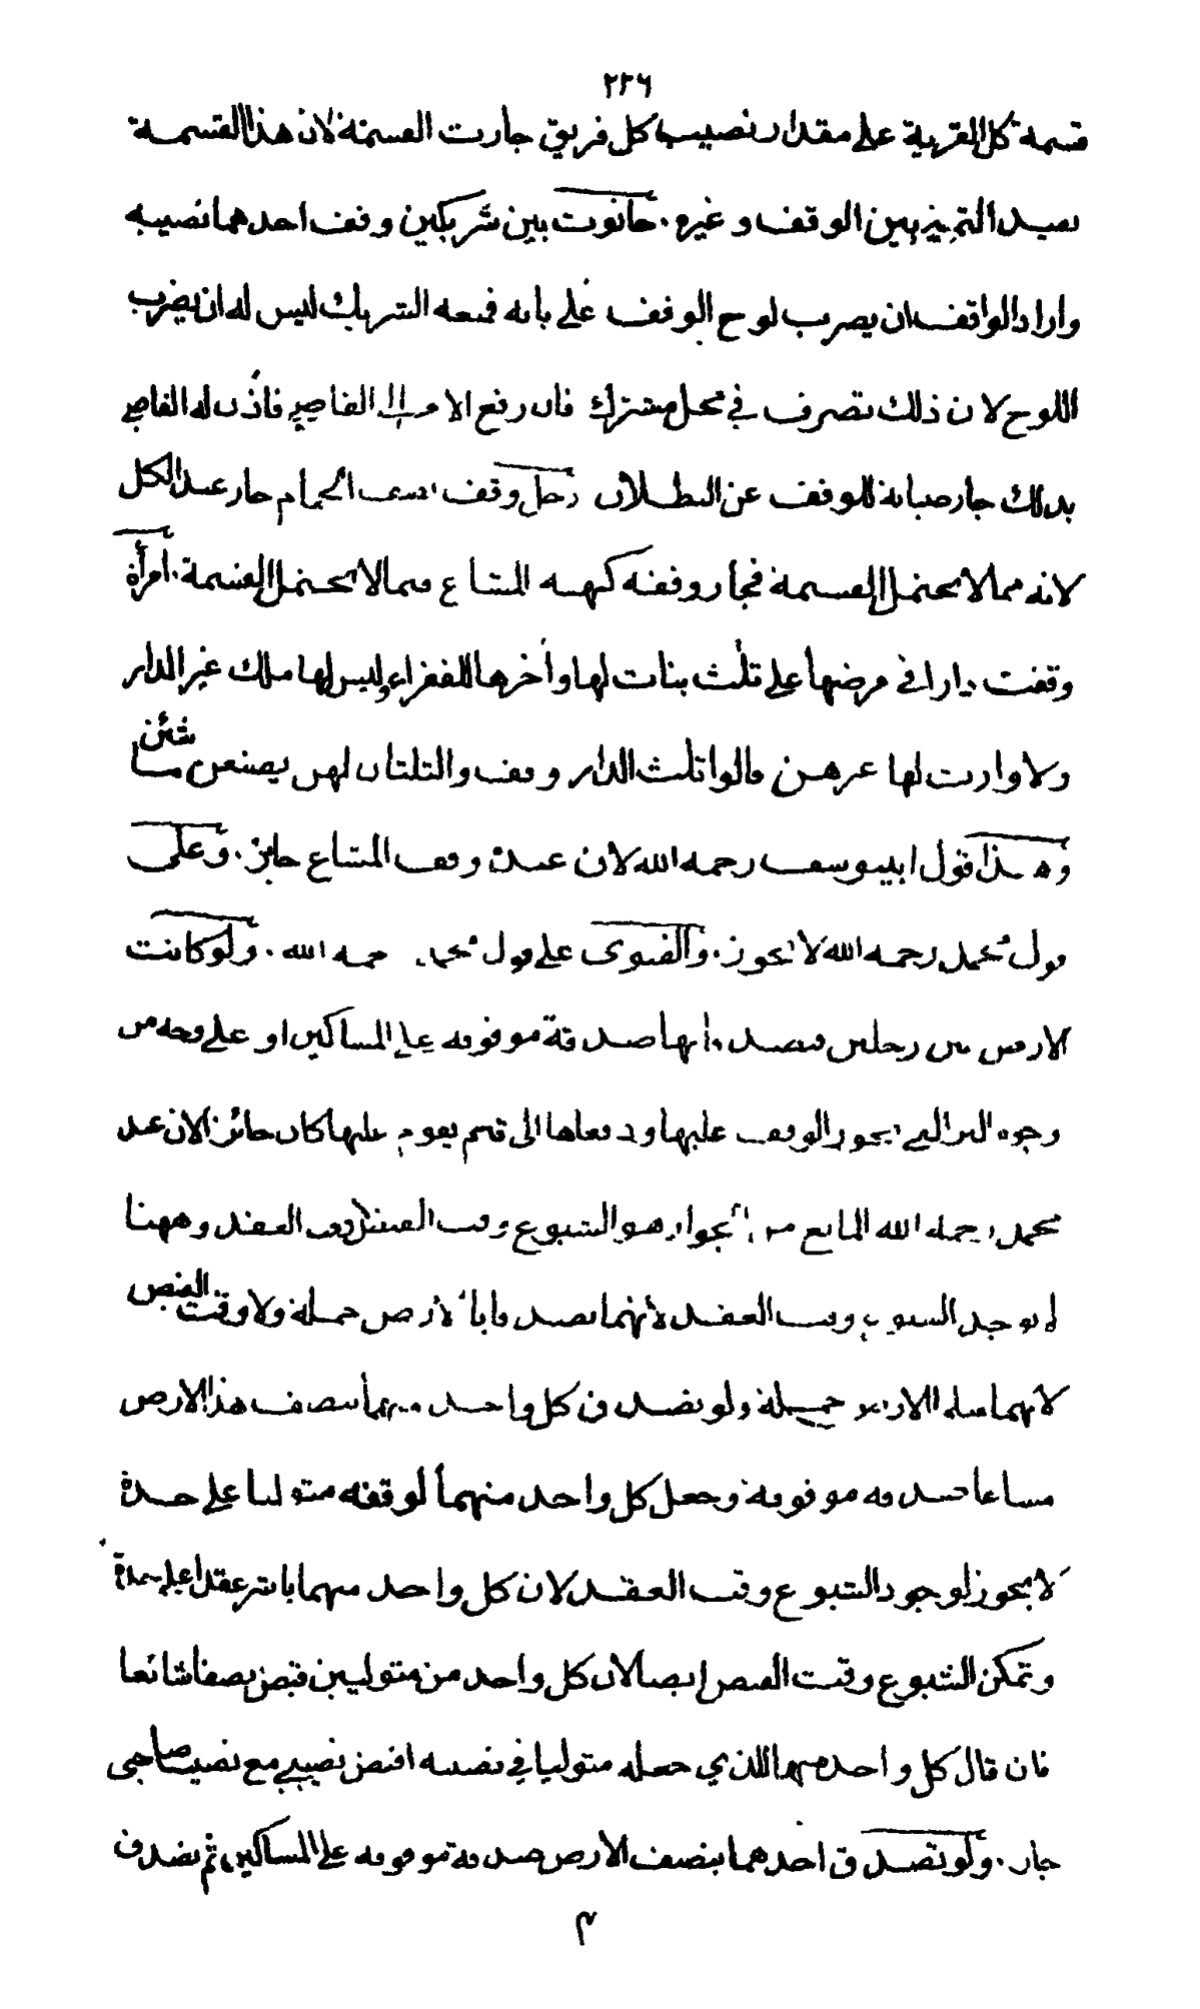 ٢٢٦
قسمة كل القرية على مقدار نصيب كل فريق جازت القسمة لان هذا القسمة
تفيد التمييز بين الوقف وغيره . حانوت بين شريكين وقف احدهما نصيبه
واراد الواقف ان يضرب لوح الوقف على بابه فمنعه الشريك ليس له ان يضرب
اللوح لان ذلك تصرف في محل مشترك فان رفع الامر الى القاضي فاذن له القاضي
بذلك جاز صيانة للوقف عن البطلان رجل وقف الحمام جاز عند الكل
لانه مما لا يحتمل القسمة فجاز وقفه كهبة المشاع فيما لا يحتمل القسمة . امرأة
وقفت دارا في مرضها على ثلث بنات لها وآخرها للفقراء وليس لها ملك غير الدار
ولا وارث لها غيرهن قالوا ثلث الدار وقف والثلثان لهن يصنعن ما شئن
وهذا قول ابييوسف رحمه الله لان عنده وقف المشاع جائز . وعلى
قول محمد رحمه الله لا يجوز . والفتوى على قول محمد رحمه الله . ولو كانت
الارض بين رجلين فتصدقا بها صدقة موقوفة على المساكين او على وجه من
وجوه البر التي يجوز الوقف عليها ودفعاها الى قيم يقوم عليها كان جائزا لان عند
محمد رحمه الله المانع من الجواز هو الشيوع وقت القبض لا وقت العقد وههنا
لم يوجد الشيوع وقت العقد لانهما تصدقا بالارض جملة ولا وقت القبض
لانهما سلما الارض جملة ولو تصدق كل واحد منهما بنصف هذا الارض
مشاعا صدقة موقوفة وجعل كل واحد منهما لوقفه متوليا على حدة
لا يجوز لوجود الشيوع وقت العقد لان كل واحد منهما باشر عقدا على حدة
وتمكن الشيوع وقت القبض ايضا لان كل واحد من متوليين قبض نصفا شائعا
فان قال كل واحد منهما للذي جعله متوليا في نصيبه اقبض نصيبي مع نصيب صاحبي
جاز . ولو تصدق احدهما بنصف الارض صدقة موقوفة على المساكين ثم تصدق